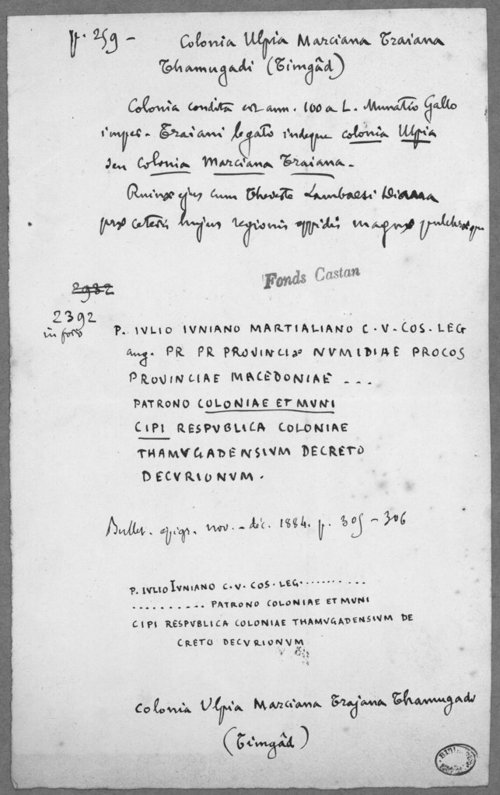 p. 259 - Colonia Ulpia Marciana Traiana
Thamugadi (Timgâd)
Colonia condita est ann. 100 a L. Munatio Gallo
imper. Traiani legato indeque colonia Ulpia
seu Colonia Marciana Traiana.
Ruinæ ejus cum Theveste Lambaesi Diana
præ ceteris hujus regionis oppidis magnæ pulchræque
Fonds Castan
2932
2392
in foro
P. IVLIO IVNIANO MARTIALIANO C. V. COS. LEG
aug. PR PR PROVINCIÆ NVMIDIAE PROCOS
PROVINCIAE MACEDONIAE ...
PATRONO COLONIAE ET MVNI
CIPI RESPVBLICA COLONIAE
THAMVGADENSIVM DECRETO
DECVRIONVM.
Bullet. epigr. nov. - déc. 1884. p. 305 - 306
P. IVLIO IVNIANO C. V. COS. LEG ..........
.......... PATRONO COLONIAE ET MVNI
CIPI RESPVBLICA COLONIAE THAMVGADENSIVM DE
CRETO DECVRIONVM
Colonia Ulpia Marciana Trajana Thamugade
(Timgâd)